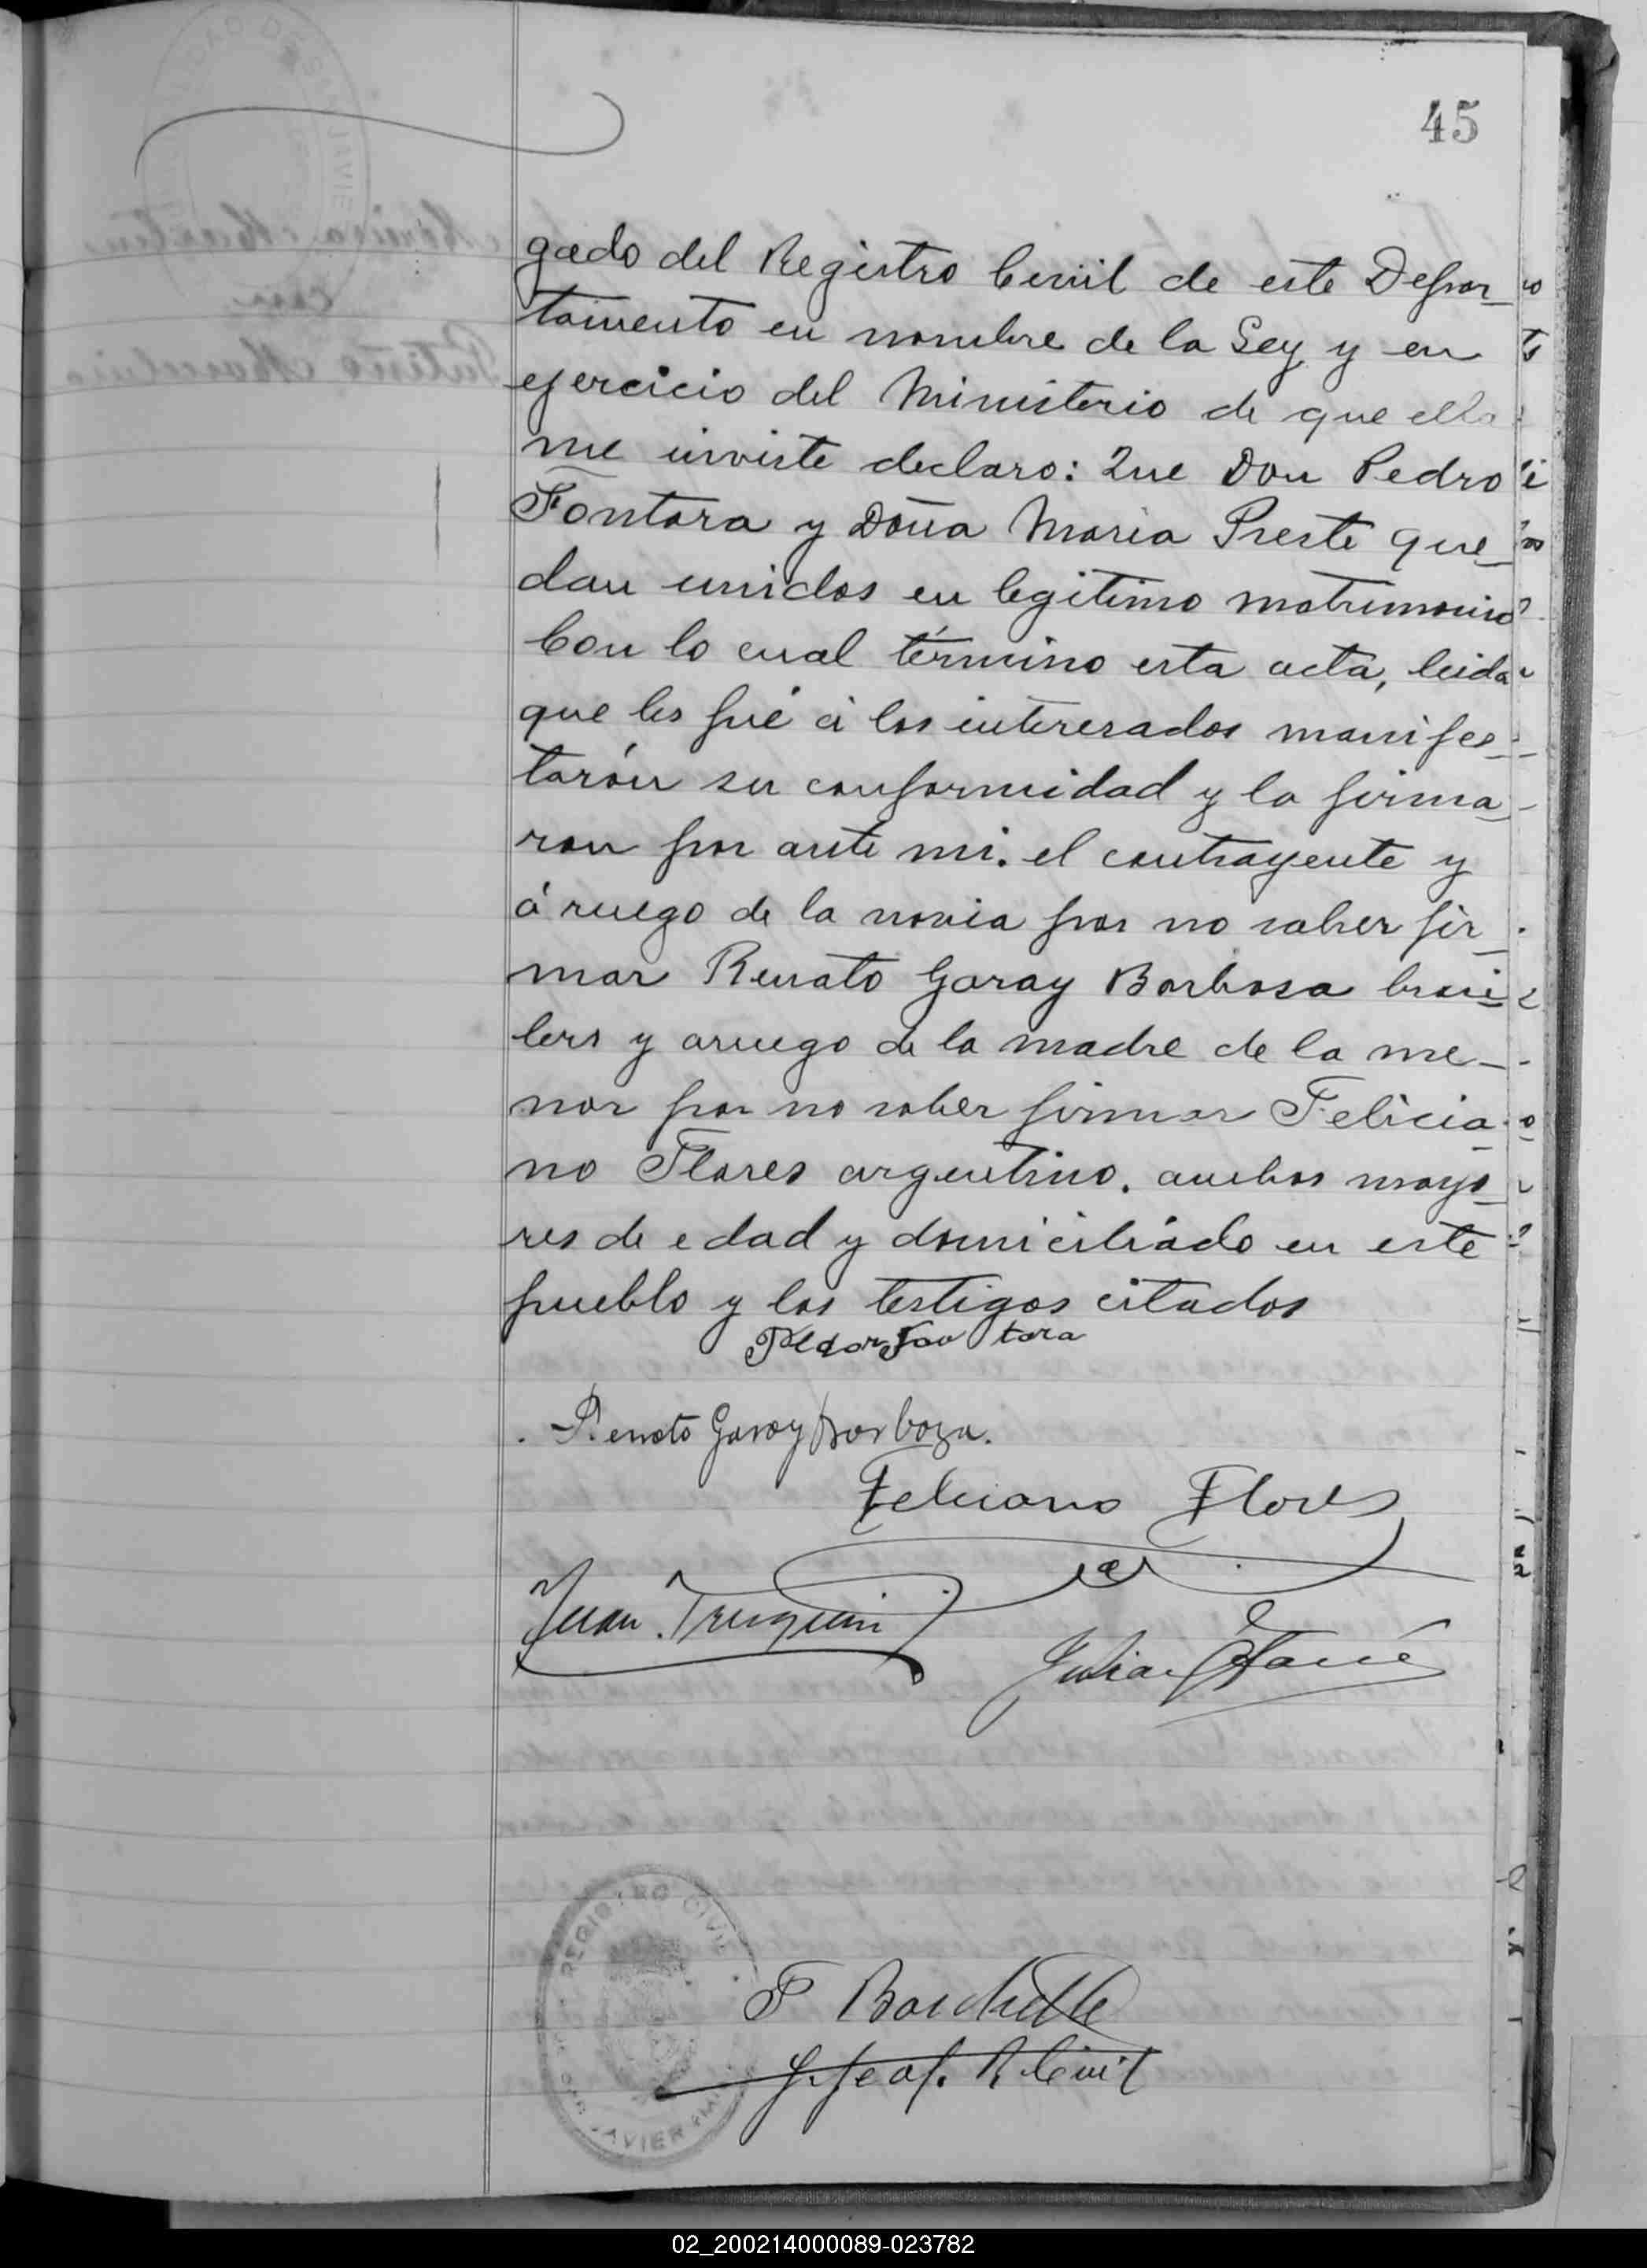 45
gado del Registro Civil de este Depar_
tamento en nombre de la Ley y en
ejercicio del Ministerio de que ella
me inviste declaro: Que Don Pedro
Fontora y Doña Maria Preste que_
dan unidos en legitimo matrimonio
Con lo cual término esta acta, leida
que les fué á los interesados manifes_
tarón su conformidad y la firma_
ron por ante mi. el contrayente y
á ruego de la novia por no saber fir_
mar Renato Garay Barbosa brasi_
lero y aruego de la madre de la me_
nor por no saber firmar Felicia_
no Flores argentino. ambos mayo_
res de edad y domiciliado en este
pueblo y los testigos citados
Fontora
Renato Garay Barboza.
Feliciano Flores
Juan Truquin
Julian
REGISTRO CIVIL
SAN JAVIER
Jefe of. R Civil
02_200214000089-023782